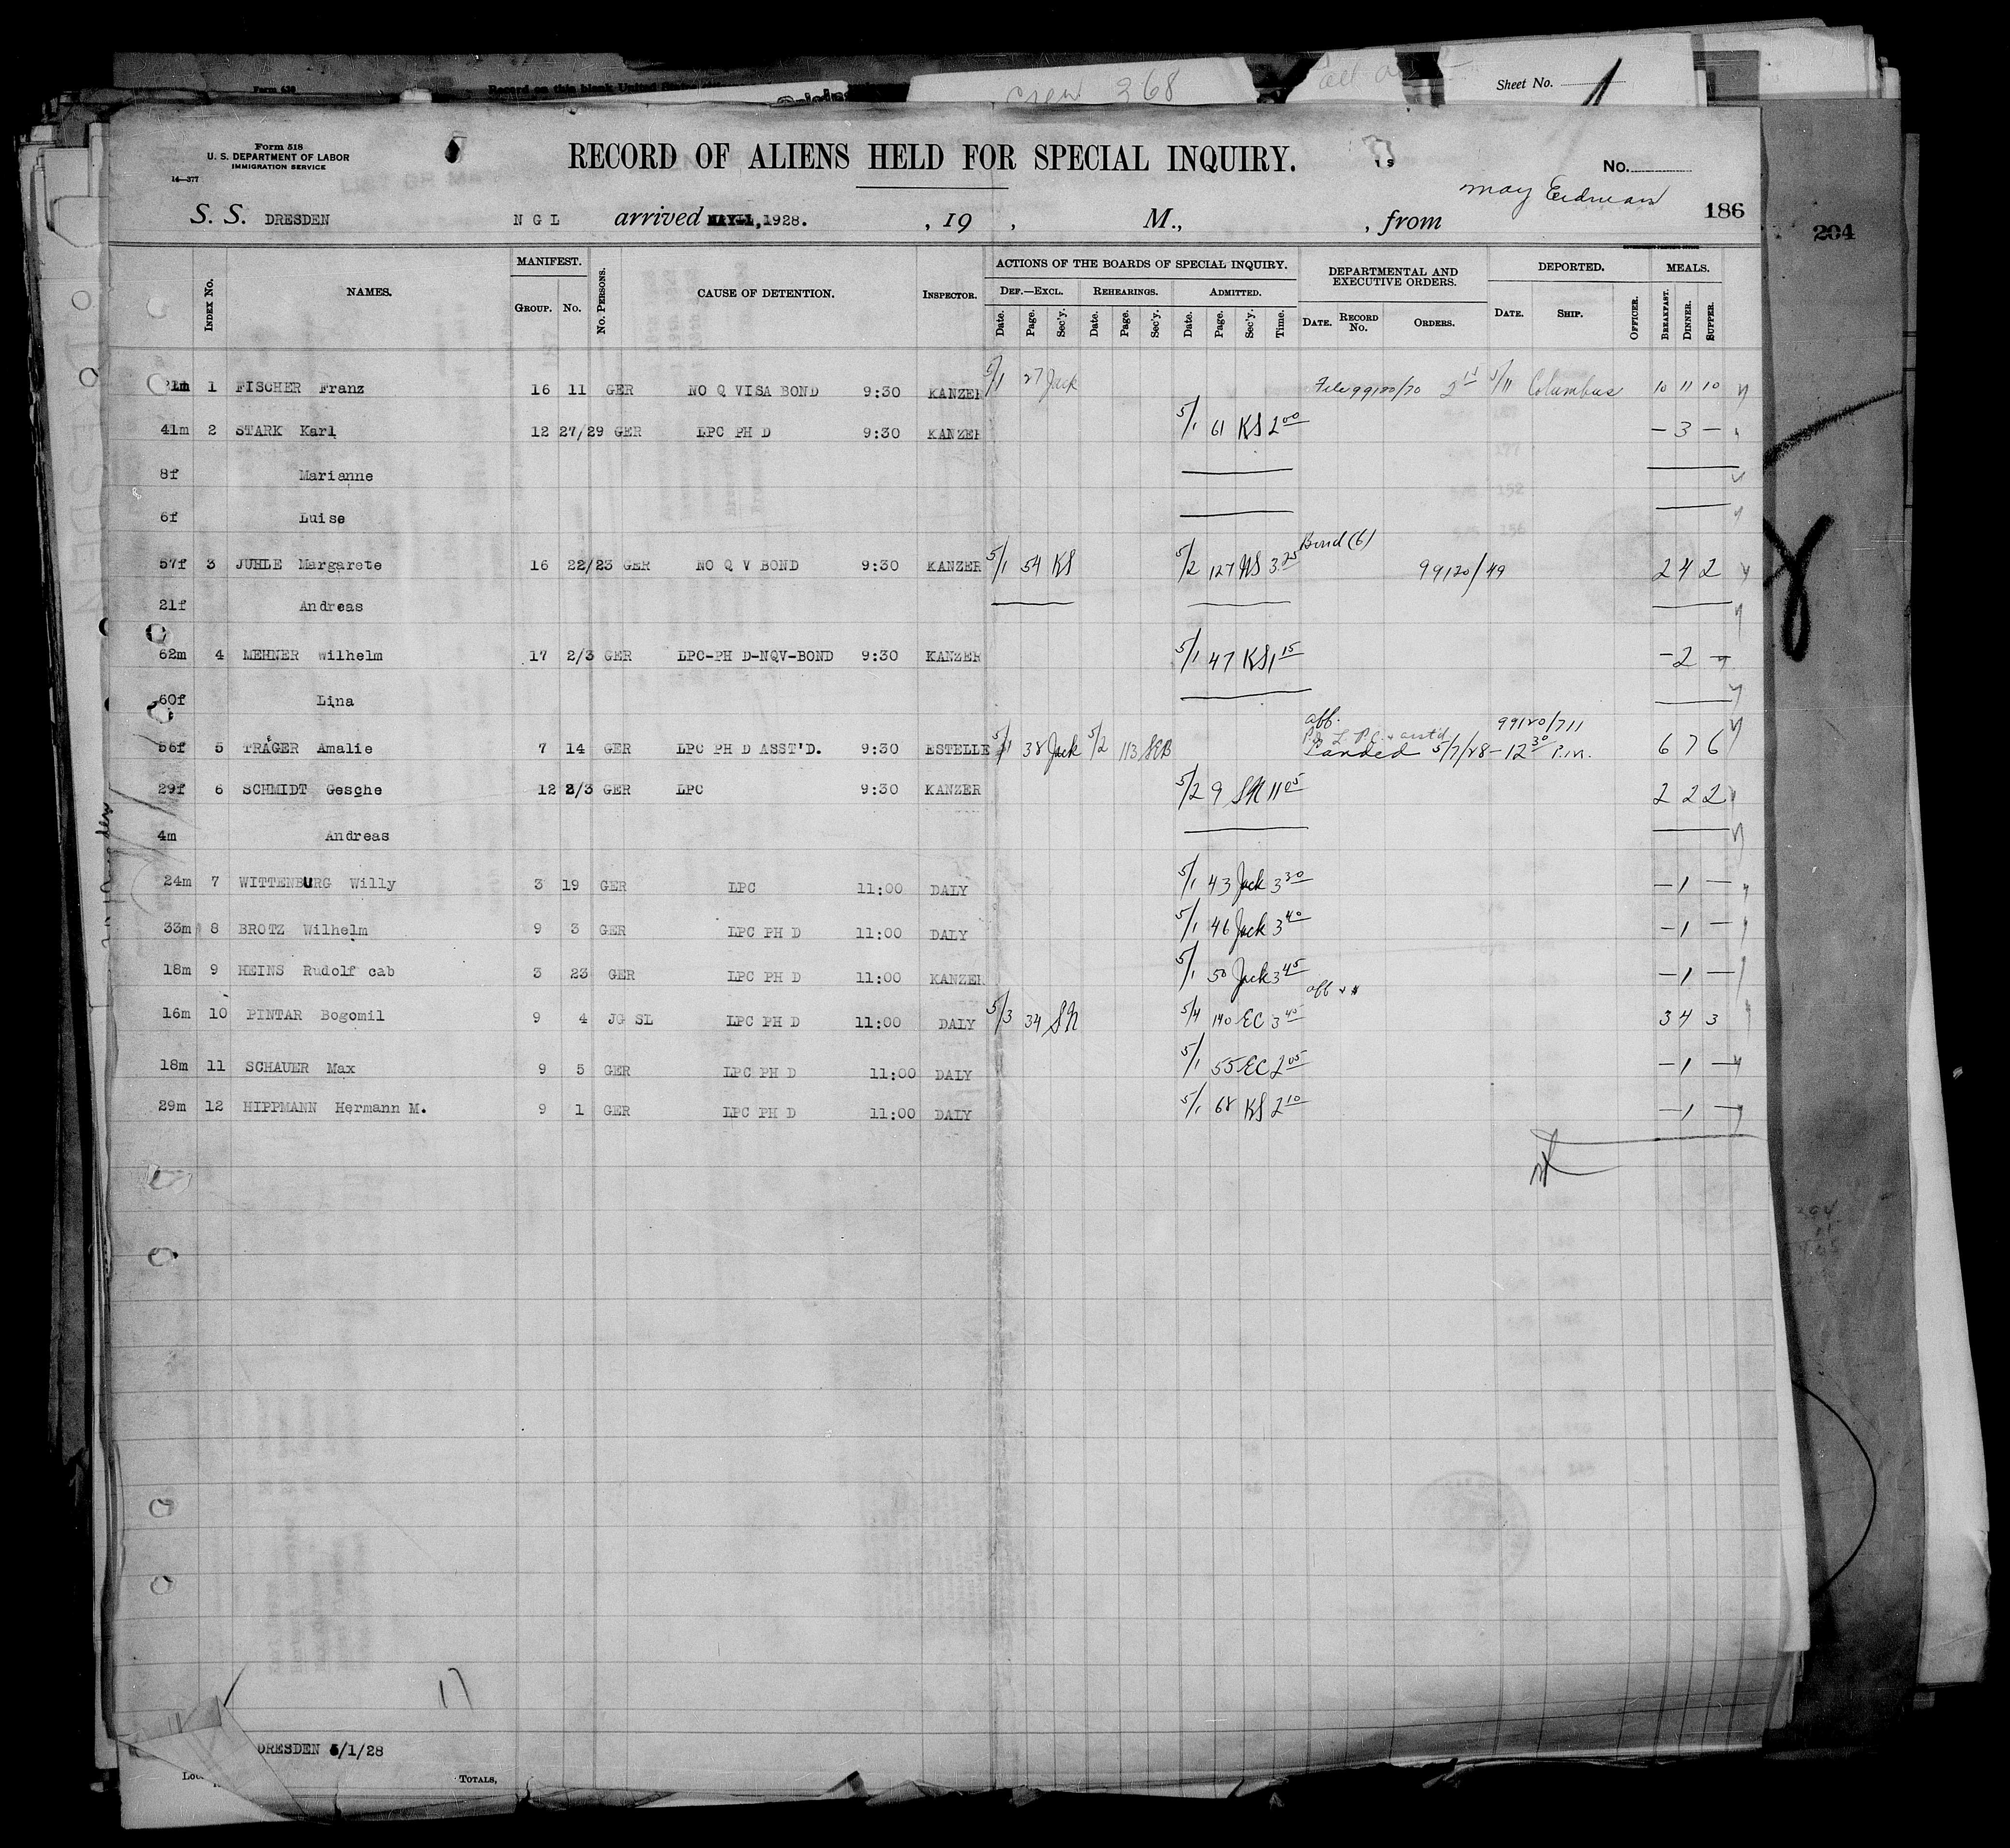 Form 630 Record on this blank United States
Crew 368
Sheet No. 1
Form 518
U. S. DEPARTMENT OF LABOR
IMMIGRATION SERVICE
14—377
RECORD OF ALIENS HELD FOR SPECIAL INQUIRY.
No.
May Erdman
186
204
S. S. DRESDEN N G L arrived MAY 1, 1928. , 19 , M., , from
INDEX No. NAMES. MANIFEST. GROUP. No. No. PERSONS. CAUSE OF DETENTION. INSPECTOR. ACTIONS OF THE BOARDS OF SPECIAL INQUIRY. DEPARTMENTAL AND EXECUTIVE ORDERS. DEPORTED. MEALS.
DEF.—EXCL. REHEARINGS. ADMITTED.
Date. Page. Sec'y. Date. Page. Sec'y. Date. Page. Sec'y. Time. DATE. RECORD No. ORDERS. DATE. SHIP. OFFICER. BREAKFAST. DINNER. SUPPER.
21m 1 FISCHER Franz 16 11 GER NO Q VISA BOND 9:30 KANZER 5/1 27 Jack File 99120/70 5/11 Columbus 10 11 10
41m 2 STARK Karl 12 27/29 GER LPC PH D 9:30 KANZER 5/1 61 KS 2 00 — 3 —
8f Marianne
6f Luise
Bond (6)
57f 3 JUHLE Margarete 16 22/23 GER NO Q V BOND 9:30 KANZER 5/1 54 KS 5/2 127 KS 3.25 99120/49 2 4 2
21f Andreas
62m 4 MEHNER Wilhelm 17 2/3 GER LPC-PH D-NQV-BOND 9:30 KANZER 5/1 47 KS 1 15 — 2 —
60f Lina
aff. 99120/711
P.D. L.P.C. + asst'd
56f 5 TRAGER Amalie 7 14 GER LPC PH D ASST'D. 9:30 ESTELLE 5/1 38 Jack 5/2 113 SEB Landed 5/7/28 - 12 30 P.M. 6 7 6
29f 6 SCHMIDT Gesche 12 2/3 GER LPC 9:30 KANZER 5/2 9 SN 11 05 2 2 2
4m Andreas
24m 7 WITTENBURG Willy 3 19 GER LPC 11:00 DALY 5/1 43 Jack 3 30 — 1 —
33m 8 BROTZ Wilhelm 9 3 GER LPC PH D 11:00 DALY 5/1 46 Jack 3 40 — 1 —
18m 9 HEINS Rudolf cab 3 23 GER LPC PH D 11:00 KANZER 5/1 50 Jack 3 45 — 1 —
16m 10 PINTAR Bogomil 9 4 JG SL LPC PH D 11:00 DALY 5/3 34 SN 5/4 140 EC 3 40 3 4 3
18m 11 SCHAUER Max 9 5 GER LPC PH D 11:00 DALY 5/1 55 EC 2 05 — 1 —
29m 12 HIPPMANN Hermann M. 9 1 GER LPC PH D 11:00 DALY 5/1 68 KS 2 10 — 1 —
17
DRESDEN 5/1/28
TOTALS,